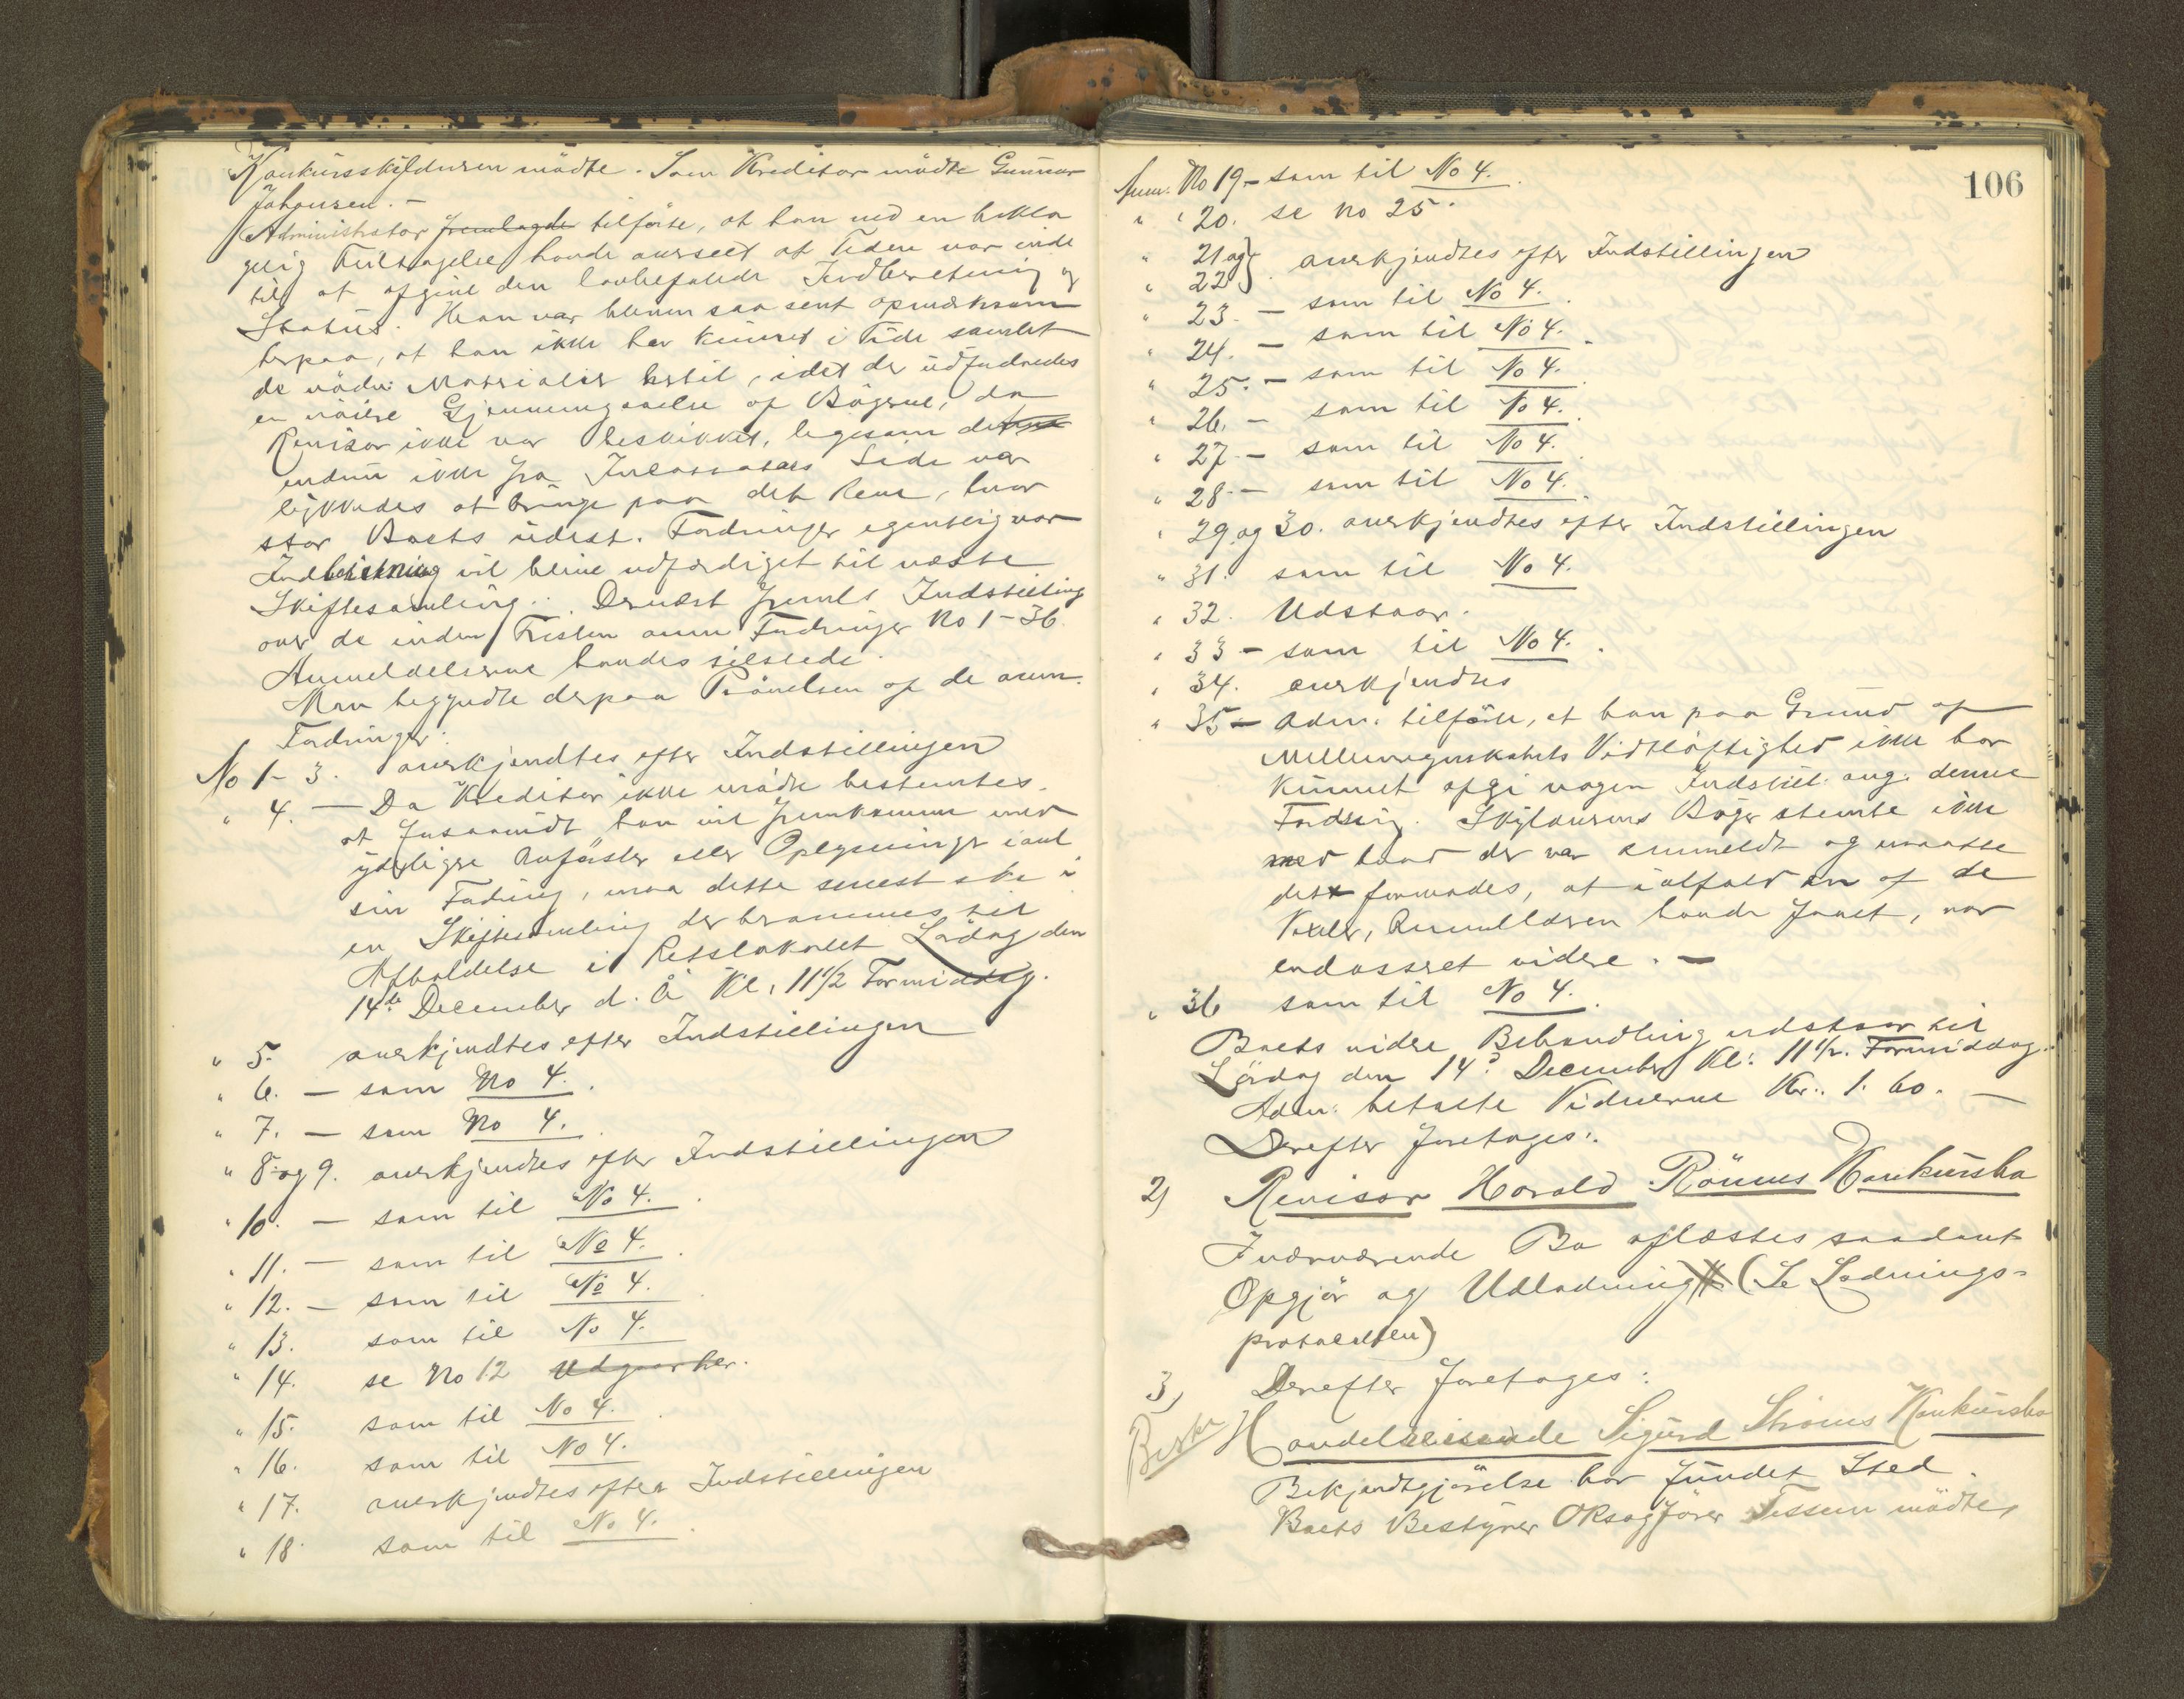 Konkursskyldneren mödte. Som Kreditor mödte Gunnar
Johansen. -
Administrator fremlagde tilförte, at han ved en bekla
gelig Feiltagelse havde overseet at Tiden var inde
til at afgive den lovbefalede Indberetning og
Status. Han var bleven saa sent opmærksom
herpaa, at han ikke har kunnet i Tide samlet
de nödv. Materialier hertil, idet der udfordredes
en nöiere Gjennemgaaelse af Bögerne, da
Revisor ikke var beskikket, ligesom det
endnu ikke fra Inkassators Side var
lykkedes at bringe paa det Rene, hvor
stor Boets udest. Fordringer egentlig var
Indberetning vil blive udfærdiget til næste
Skiftesamling. Dernæst freml. Indstilling
over de inden Fristen anm Fordringer No 1-36.
Anmeldelserne havdes tilstede.
Man begyndte derpaa Prövelsen af de anm.
Fordringer:
No 1-3. anerkjendtes efter Indstillingen
" 4. — Da Kreditor ikke mödte bestemtes
at forsaavidt han vil fremkomme med
yderligere Anförsler eller Oplysninger i anl
sin Fordring, maa dette senest ske i
en Skiftesamling der berammes til
Afholdelse i Retslokalet Lördag den
14de December d. Å Kl. 11½ Formiddag.
" 5. anerkjendtes efter Indstillingen
" 6. — som No 4.
" 7. — som No 4.
" 8 og 9. anerkjendtes efter Indstillingen
" 10. — som til No 4.
" 11. — som til No 4.
" 12. — som til No 4.
" 13. som til No 4.
" 14. se No 12 Udgaar her.
" 15. som til No 4.
" 16. som til No 4.
" 17. anerkjendtes efter Indstillingen
" 18 som til No 4.
106
Anm. No 19 - som til No 4.
" " 20. se No 25.
" 21 og
" 22 } anerkjendtes efter Indstillingen
" 23. — som til No 4.
" 24. — som til No 4.
" 25. — som til No 4.
" 26. — som til No 4.
" 27. — som til No 4.
" 28. — som til No 4.
" 29 og 30. anerkjendtes efter Indstillingen
" 31. som til No 4.
" 32. Udstaar.
" 33 - som til No 4.
" 34. anerkjendtes
" 35 — Adm. tilförte, at han paa Grund af
Mellemregnskabets Vidtlöftighed ikke har
kunnet afgi nogen Indstill. ang. denne
Fordring. Skyldnerens Böger stemte ikke
med hvad der var anmeldt og maatte
det formodes, at ialfald en af de
Vexler, Anmelderen havde faaet, var
endosseret videre. —
" 36 som til No 4.
Boets videre Behandling udstaar til
Lördag den 14de December Kl. 11½ Formiddag.
Adm. betalte Vidnerne Kr. 1.60. —
Derefter foretoges:
2) Revisor Harald Rönnes Konkursbo
I nærværende Bo aflæstes saadant
Opgjör og Udlodning (Se Lodnings-
protocollen)
3) Derefter foretoges:
Handelsreisende Sigurd Ströms Konkursbo
Bekjendtgjörelse har fundet Sted.
Boets Bestyrer ORsagförer Tessem mödte,